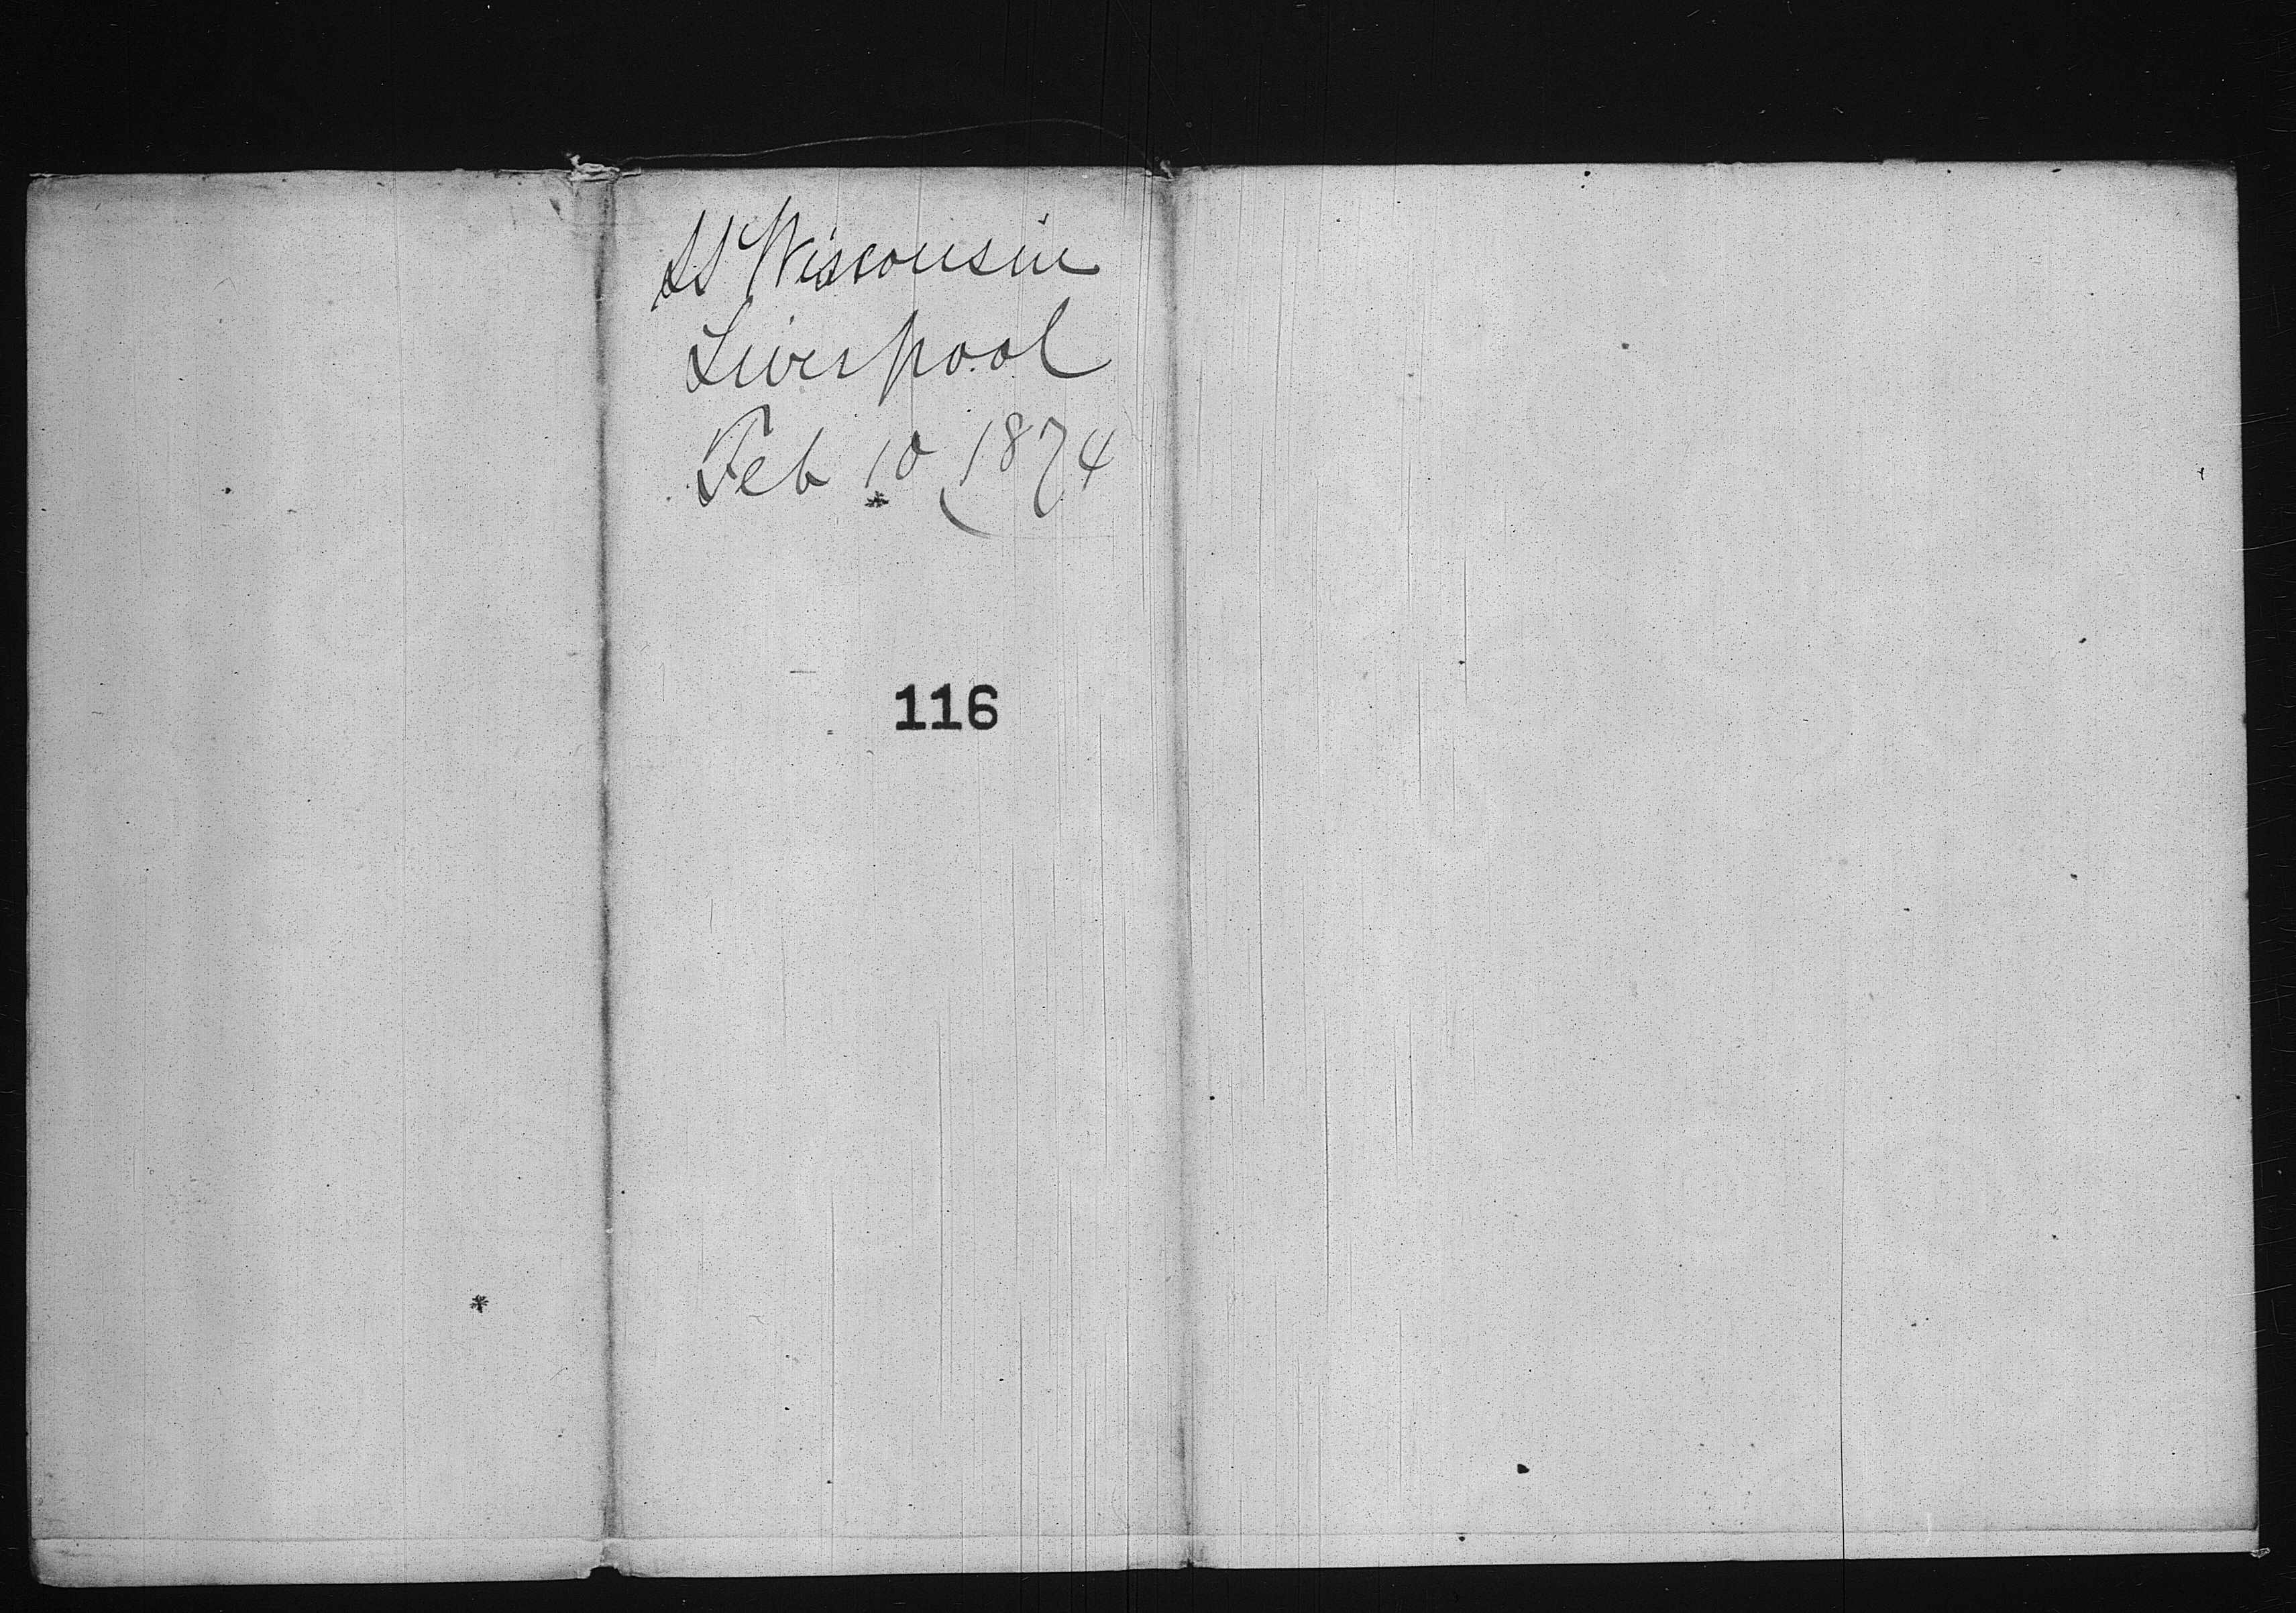 SS Wisconsin
Liverpool
Feb 10 1874
116